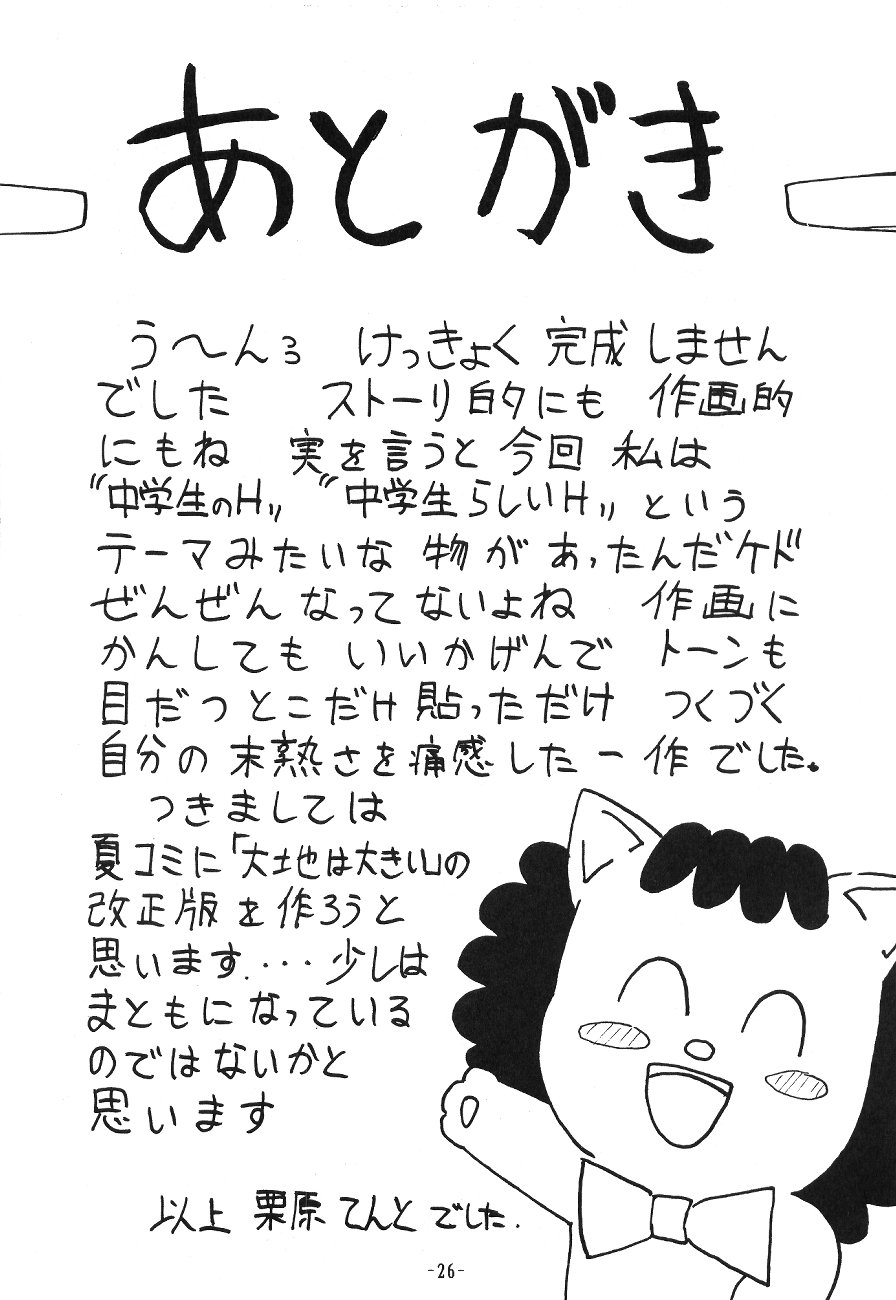 あとがき
う〜んろ けっきょく 完成しません
でした ストーリ的にも 作画的
にもね 実を言うと今回 私は
〝中学生のH〟 〝中学生らしいH〟という
テーマみたいな 物が あったんだケド
ぜんぜん なってないよね 作画に
かんしても いいかげんで トーンも
目だつとこだけ貼っただけ つくづく
自分の 末熟さを痛感した一作でした。
つきましては
夏コミに「大地は大きい」の
改正版を作ろうと
思います....少しは
まともになっている
のではないかと
思います
以上 栗原てんと でした.
-26-